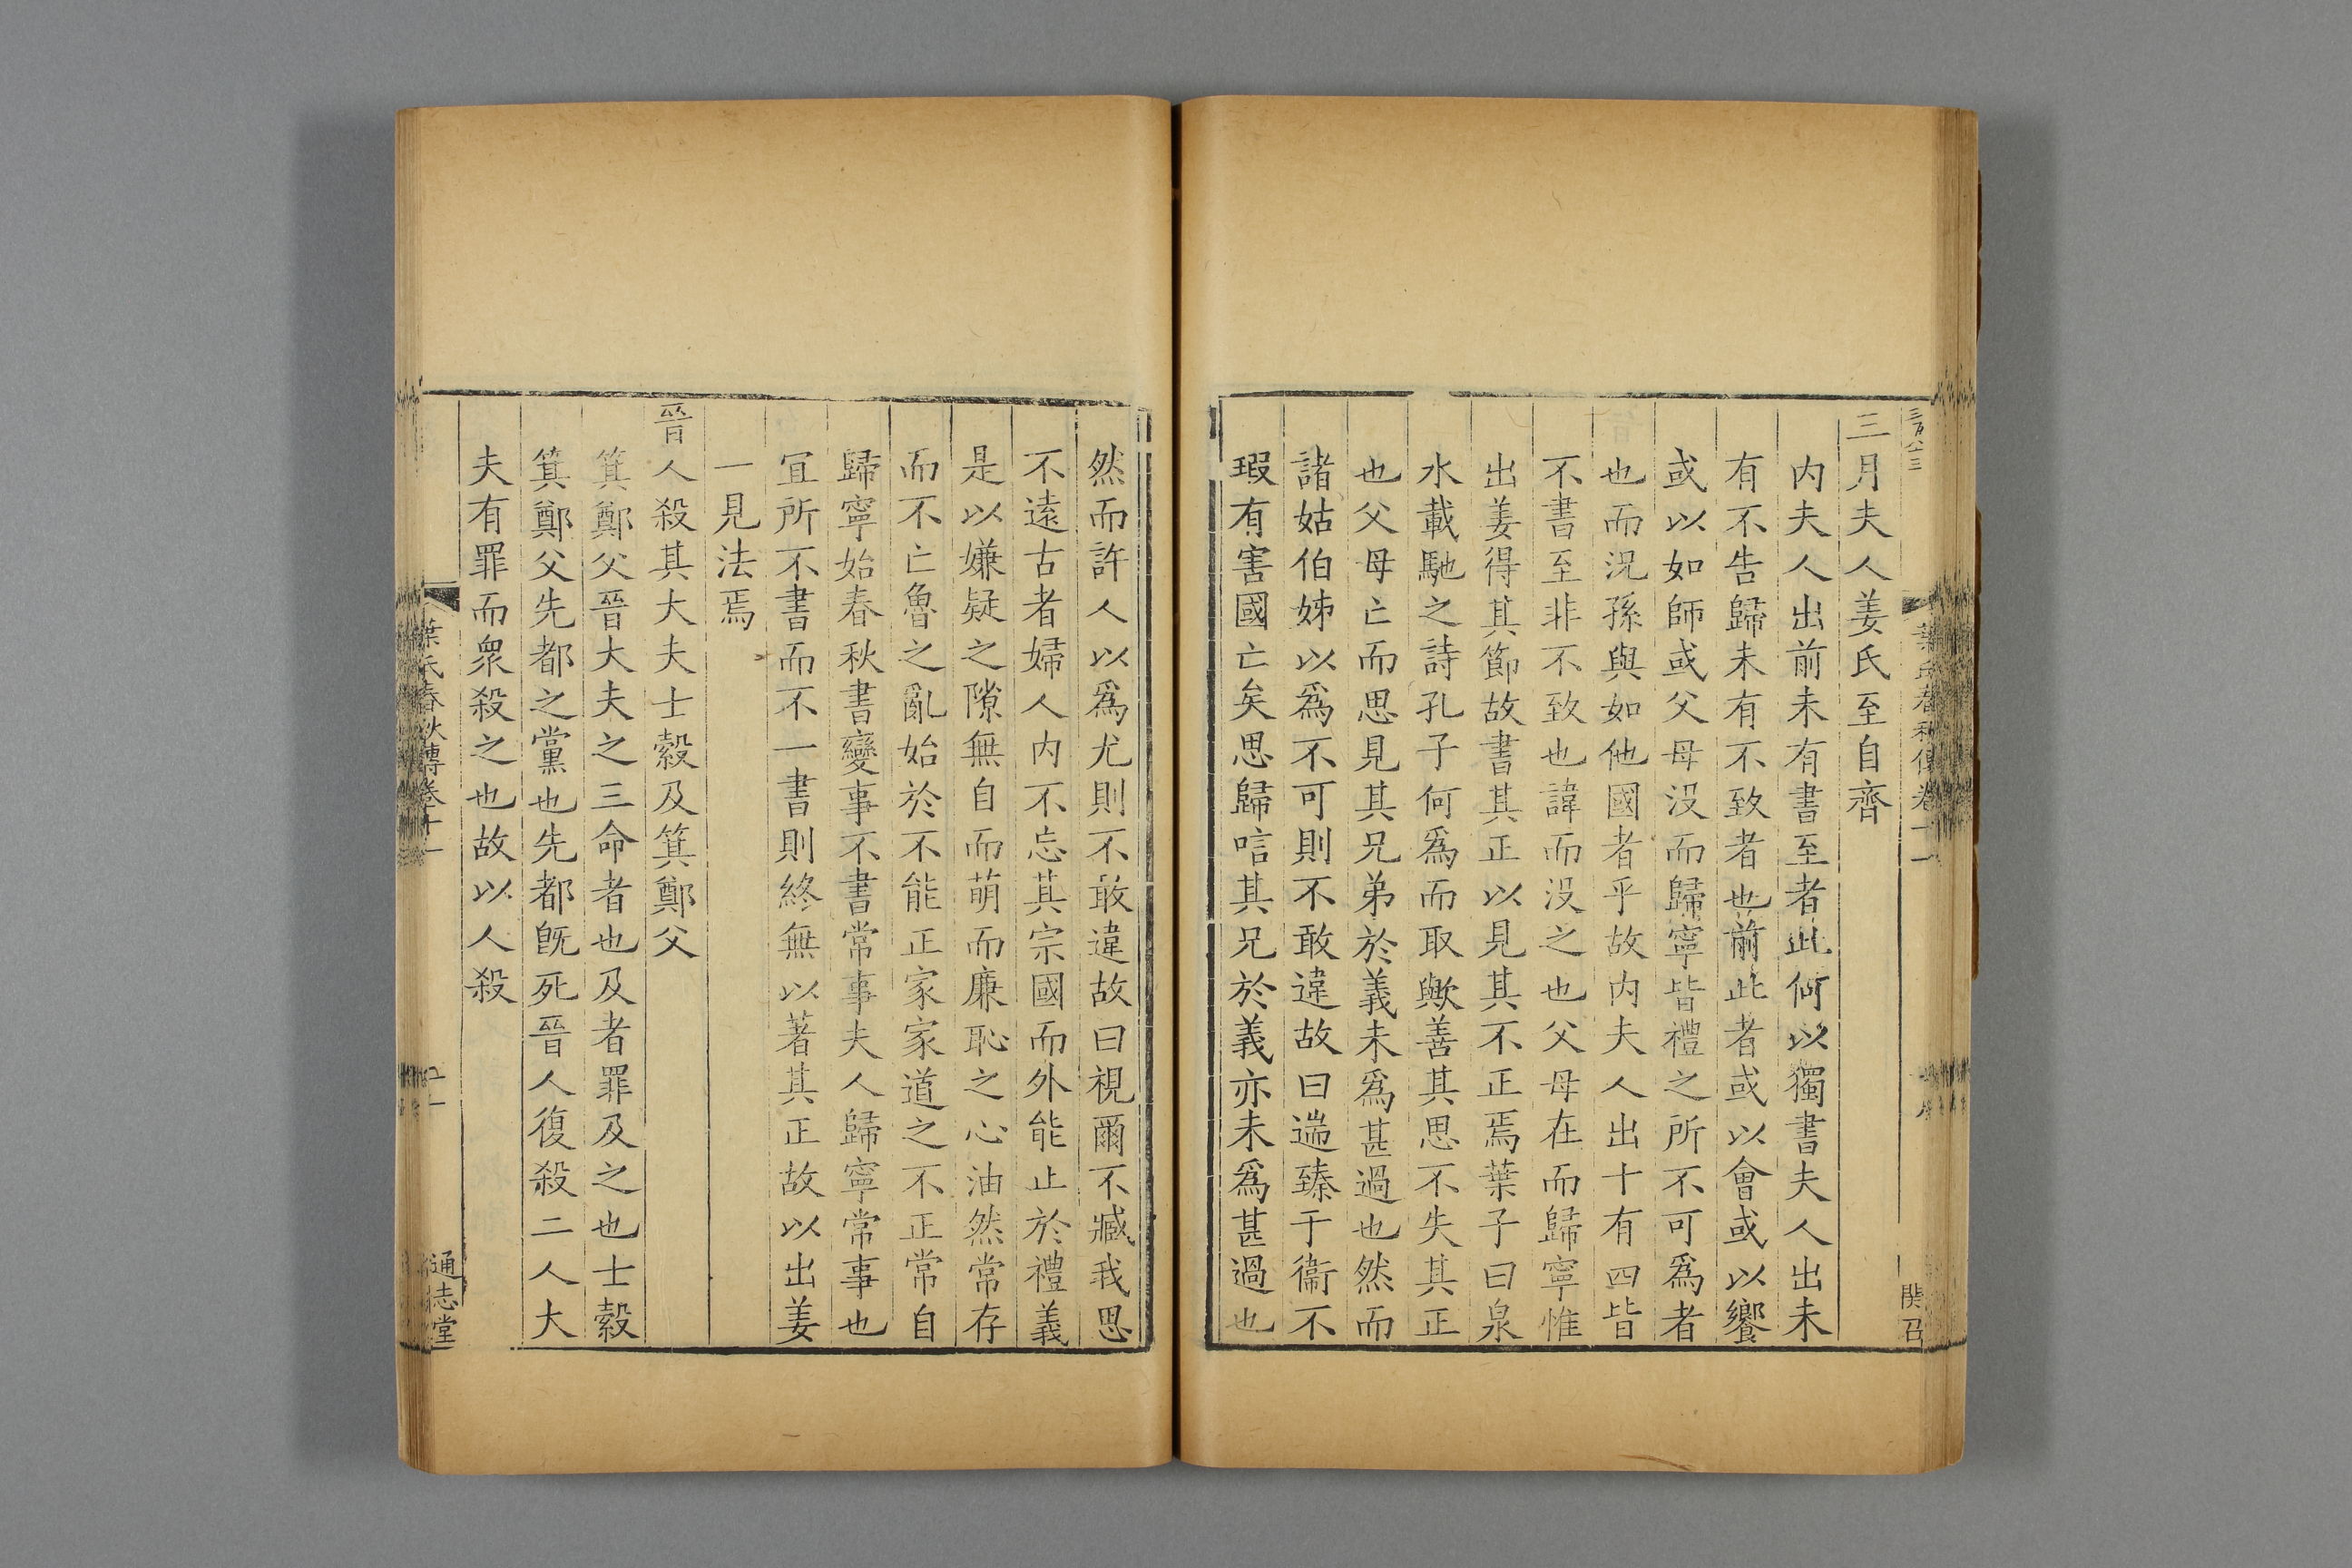 三月夫人姜氏至自齊
内夫人出前未有書至者此何以獨書夫人出未
有不告歸未有不致者也前此者或以會或以饗
或以如師或父母没而歸寧皆禮之所不可爲者
也而況孫與如他國者乎故内夫人出十有四皆
不書至非不致也諱而没之也父母在而歸寧惟
出姜得其節故書其正以見其不正焉葉子曰泉
水載馳之詩孔子何爲而取歟善其思不失其正
也父母亡而思見其兄弟於義未爲甚過也然而
諸姑伯姊以爲不可則不敢違故曰遄臻于衞不
瑕有害國亡矣思歸唁其兄於義亦未爲甚過也
然而許人以爲尤則不敢違故曰視爾不臧我思
不遠古者婦人内不忘其宗國而外能止於禮義
是以嫌疑之隙無自而萌而廉恥之心油然常存
而不亡魯之亂始於不能正家家道之不正常自
歸寧始春秋書變事不書常事夫人歸寧常事也
宜所不書而不一書則終無以著其正故以出姜
一見法焉
晉人殺其大夫士縠及箕鄭父
箕鄭父晉大夫之三命者也及者罪及之也士縠
箕鄭父先都之黨也先都旣死晉人復殺二人大
夫有罪而衆殺之也故以人殺
葉氏春秋傳卷十一
通志堂